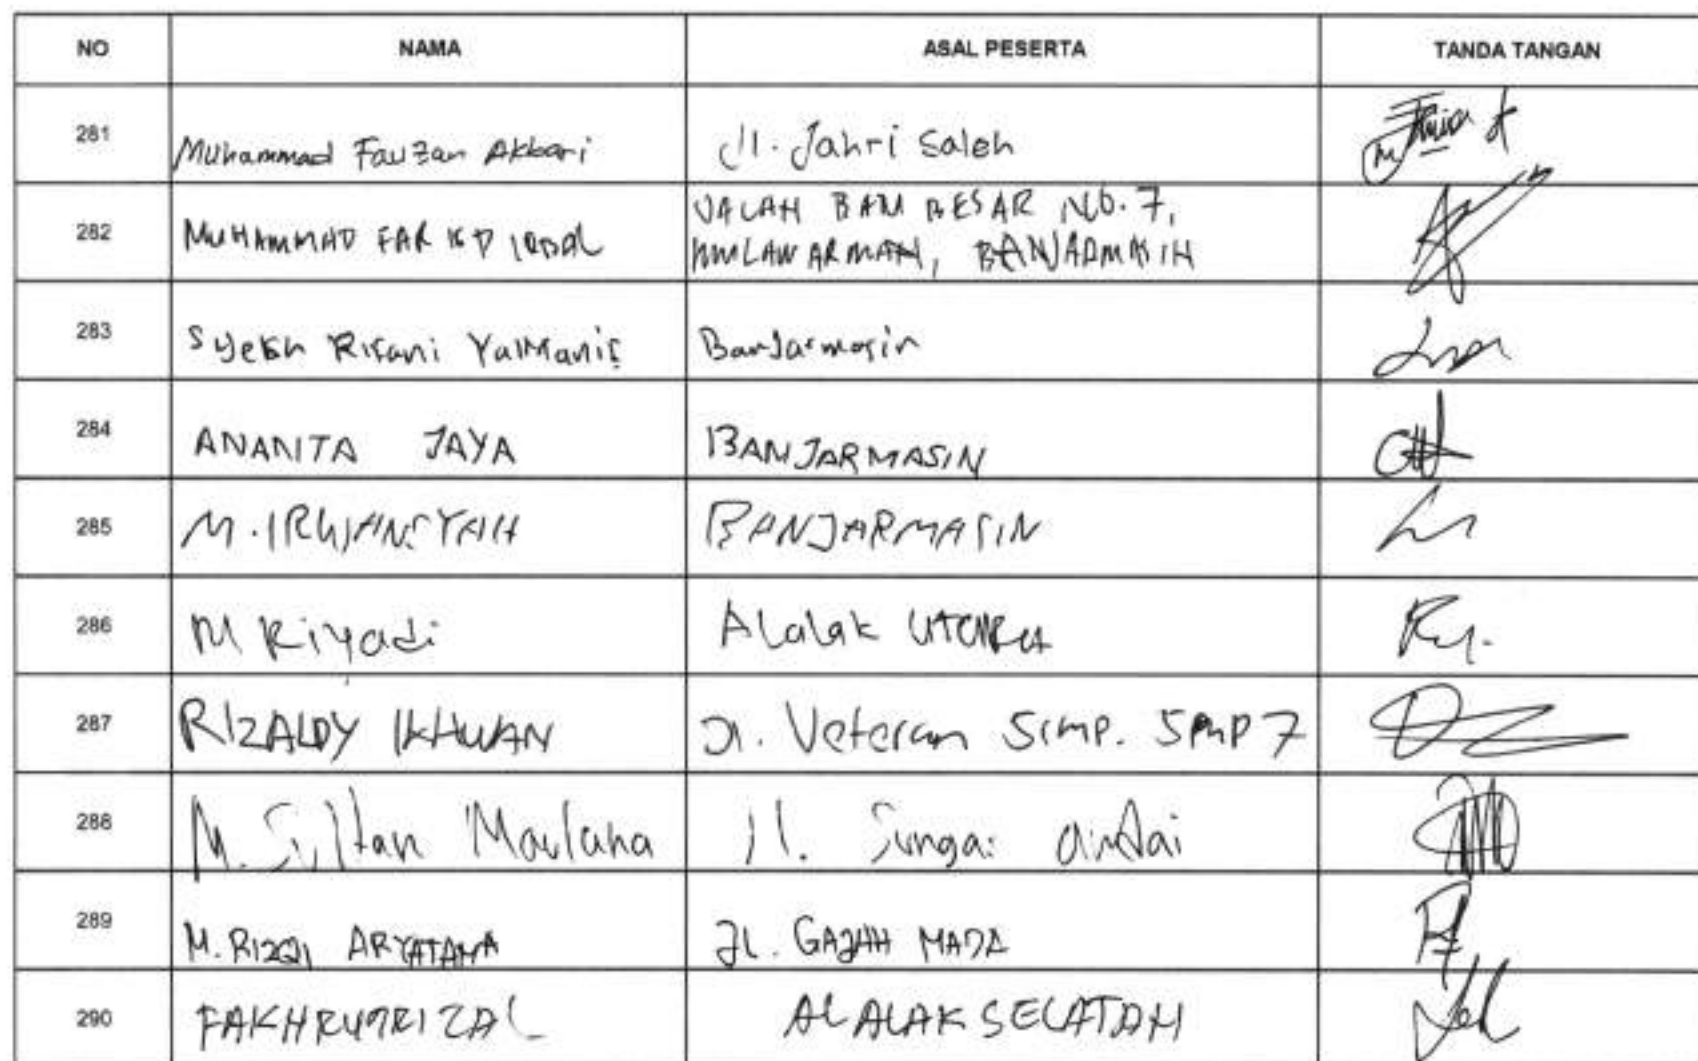 NO NAMA ASAL PESERTA TANDA TANGAN
281 Muhammad Fauzan Akbari Jl. Jahri Saleh
282 MUHAMMAD FARID IQBAL JALAN BESAR NO. 7,
MULAWARMAN, BANJARMASIN
283 Syekh Rifani Banjarmasin
284 ANANTA JAYA BANJARMASIN
285 M. IRWANSYAH BANJARMASIN
286 M Riyadi Alalak UTARA
287 RIZALDY IKHWAN Jl. Veteran Simp. SMP 7
288 M. Sultan Maulana Jl. Sungai andai
289 M. RIZQI ARYATAMA JL. GAJAH MADA
290 ALALAK SELATAN